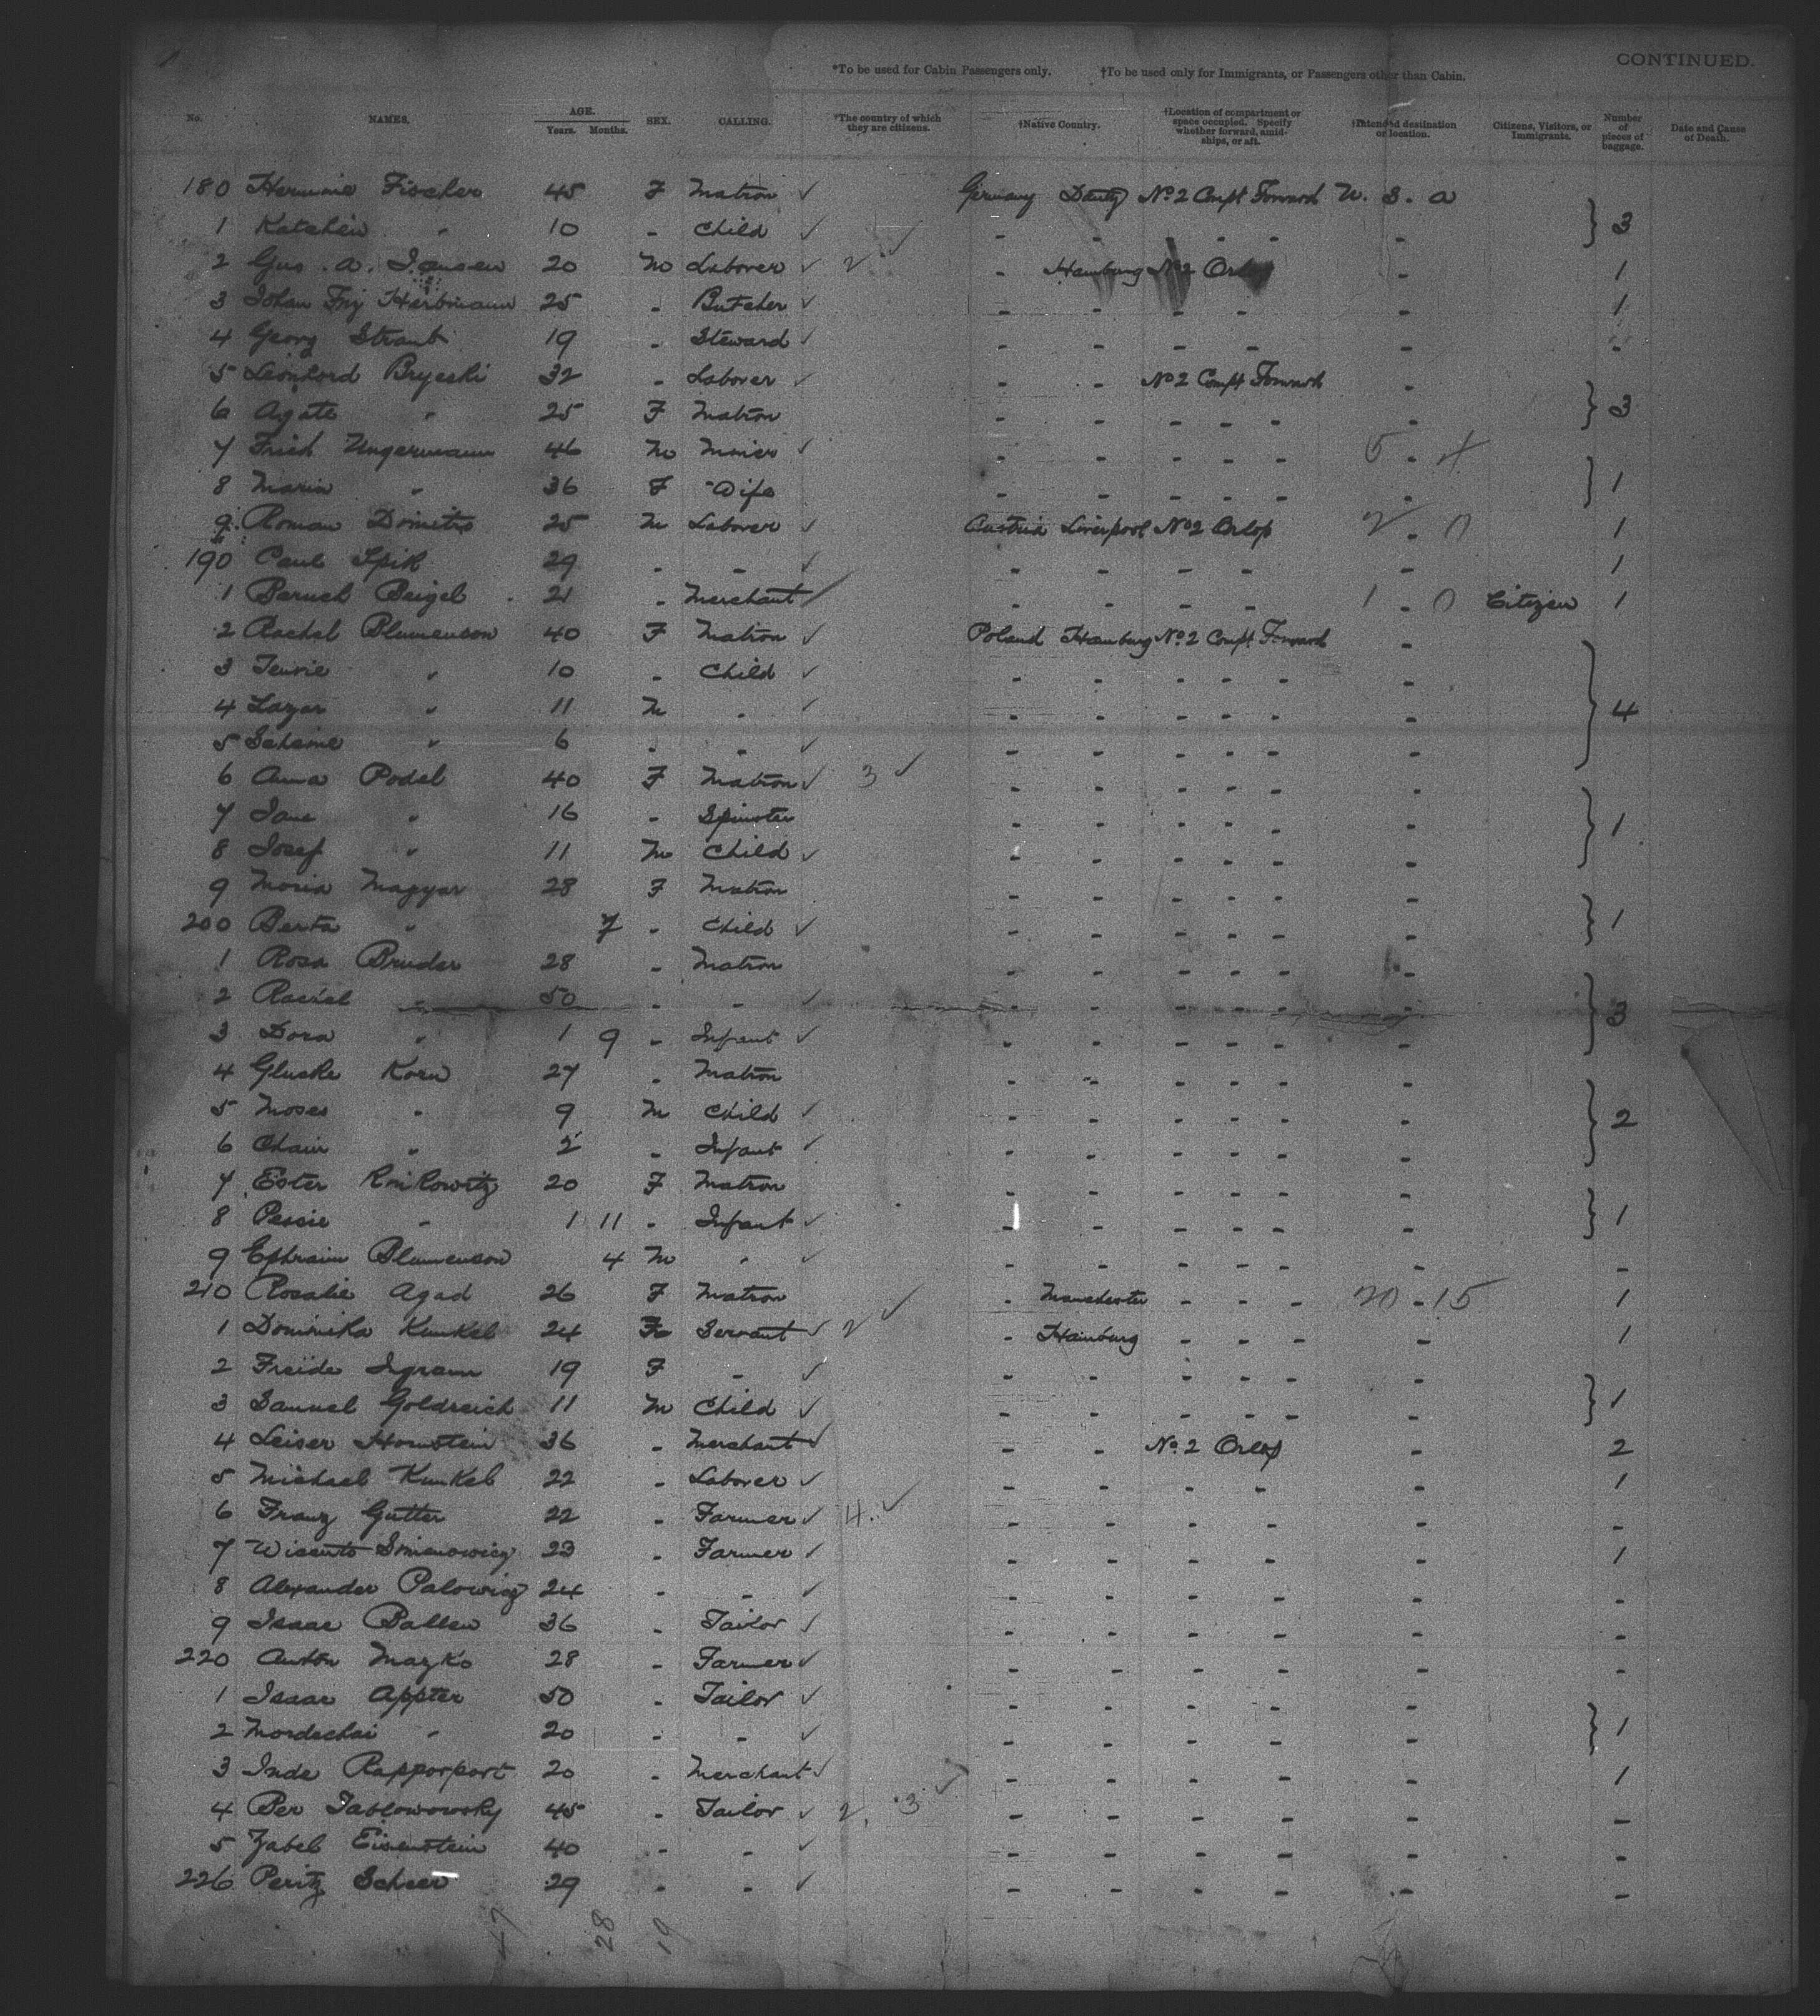 CONTINUED.
*To be used for Cabin Passengers only. †To be used only for Immigrants, or Passengers other than Cabin.
No. NAMES. AGE. Years. Months. SEX. CALLING. *The country of which they are citizens. †Native Country. †Location of compartment or space occupied. Specify whether forward, amidships, or aft. †Intended destination or location. Citizens, Visitors, or Immigrants. Number of pieces of baggage. Date and Cause of Death.
180 Hermine Fischer 45 F Matron ✓ Germany No 2 Compt Forward U. S. A
1 Katchen " 10 - Child ✓ - - - - - } 3
2 Gus. A. Jansen 20 M Laborer ✓ 2 ✓ - Hamburg No 2 Orlop - 1
3 Johan Herbmann 25 - Butcher ✓ - - - - - 1
4 Georg Straub 19 - Steward ✓ - - - - - -
5 Bryeski 32 - Laborer ✓ - - No 2 Compt Forward -
6 Agate " 25 F Matron - - - - - - } 3
7 Fried Ungermann 46 M Miner ✓ - - - - - 5 - 4
8 Maria " 36 F Wife - - - - - - } 1
9 Roman Dimitro 25 M Laborer ✓ Austria Liverpool No 2 Orlop 2 - 0 1
190 Paul Spik 29 - - ✓ - - - - - 1
1 Baruch Beigel 21 - Merchant ✓ - - - - 1 - 0 Citizen 1
2 Rachel Blumenson 40 F Matron ✓ Poland Hamburg No 2 Compt Forward -
3 " 10 - Child ✓ - - - - - -
4 Lazar " 11 M - ✓ - - - - - - } 4
5 " 6 - - ✓ - - - - - -
6 Anna Podel 40 F Matron ✓ 3 ✓ - - - - - -
7 Jane " 16 - Spinster - - - - - - } 1
8 Josef " 11 M Child ✓ - - - - - -
9 Maria Magyar 28 F Matron - - - - - -
200 Berta " 7 - Child ✓ - - - - - - } 1
1 Rosa Bruder 28 - Matron - - - - - -
2 Rachel " 50 - - ✓ - - - - - - } 3
3 Dora " 1 9 - Infant ✓ - - - - - -
4 Gluske Korn 27 - Matron - - - - - -
5 Moses " 9 M Child ✓ - - - - - - } 2
6 Chaim " 2 - Infant ✓ - - - - - -
7 Ester 20 F Matron - - - - - -
8 Pessie " 1 11 - Infant ✓ - - - - - - } 1
9 Ephraim Blumenson 4 M " ✓ - - - - - - -
210 Rosalie Agad 26 F Matron - Manchester - - - 20 - 15 1
1 Dominika Kunkel 24 F Servant ✓ 2 ✓ - Hamburg - - - - 1
2 Freide Ingram 19 F - ✓ - - - - - -
3 Samuel Goldreich 11 M Child ✓ - - - - - - } 1
4 Leiser Hornstein 36 - Merchant ✓ - - No 2 Orlop - 2
5 Michael Kunkel 22 - Laborer ✓ - - - - - 1
6 Franz Gutter 22 - Farmer ✓ 4. ✓ - - - - - -
7 23 - Farmer ✓ - - - - - 1
8 Alexander Palowicz 24 - - ✓ - - - - - -
9 Isaac Ballen 36 - Tailor ✓ - - - - - -
220 Anton Mazko 28 - Farmer ✓ - - - - - -
1 Isaac Appter 50 - Tailor ✓ - - - - -
2 Mordechai " 20 - - ✓ - - - - - } 1
3 Inde Rapporport 20 - Merchant ✓ - - - - - 1
4 Ber 45 - Tailor ✓ 2. 3 ✓ - - - - - -
5 Zabel Eisenstein 40 - - ✓ - - - - - -
226 Peritz Scheer 29 - - ✓ - - - - - -
47 28 19